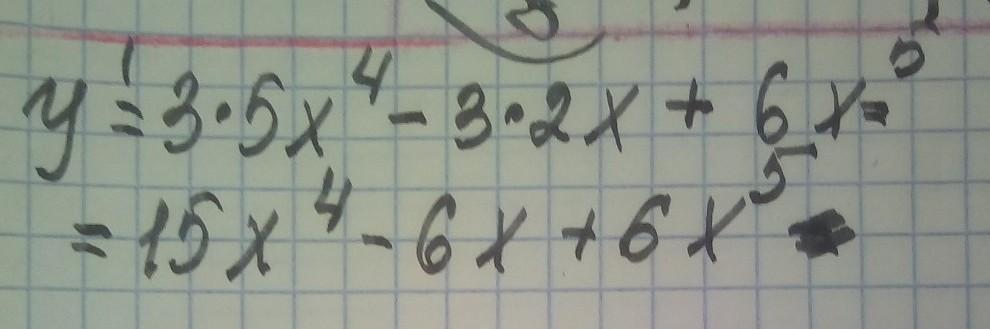 y' = 3·5x⁴ - 3·2x + 6x⁵ =
= 15x⁴ - 6x + 6x⁵